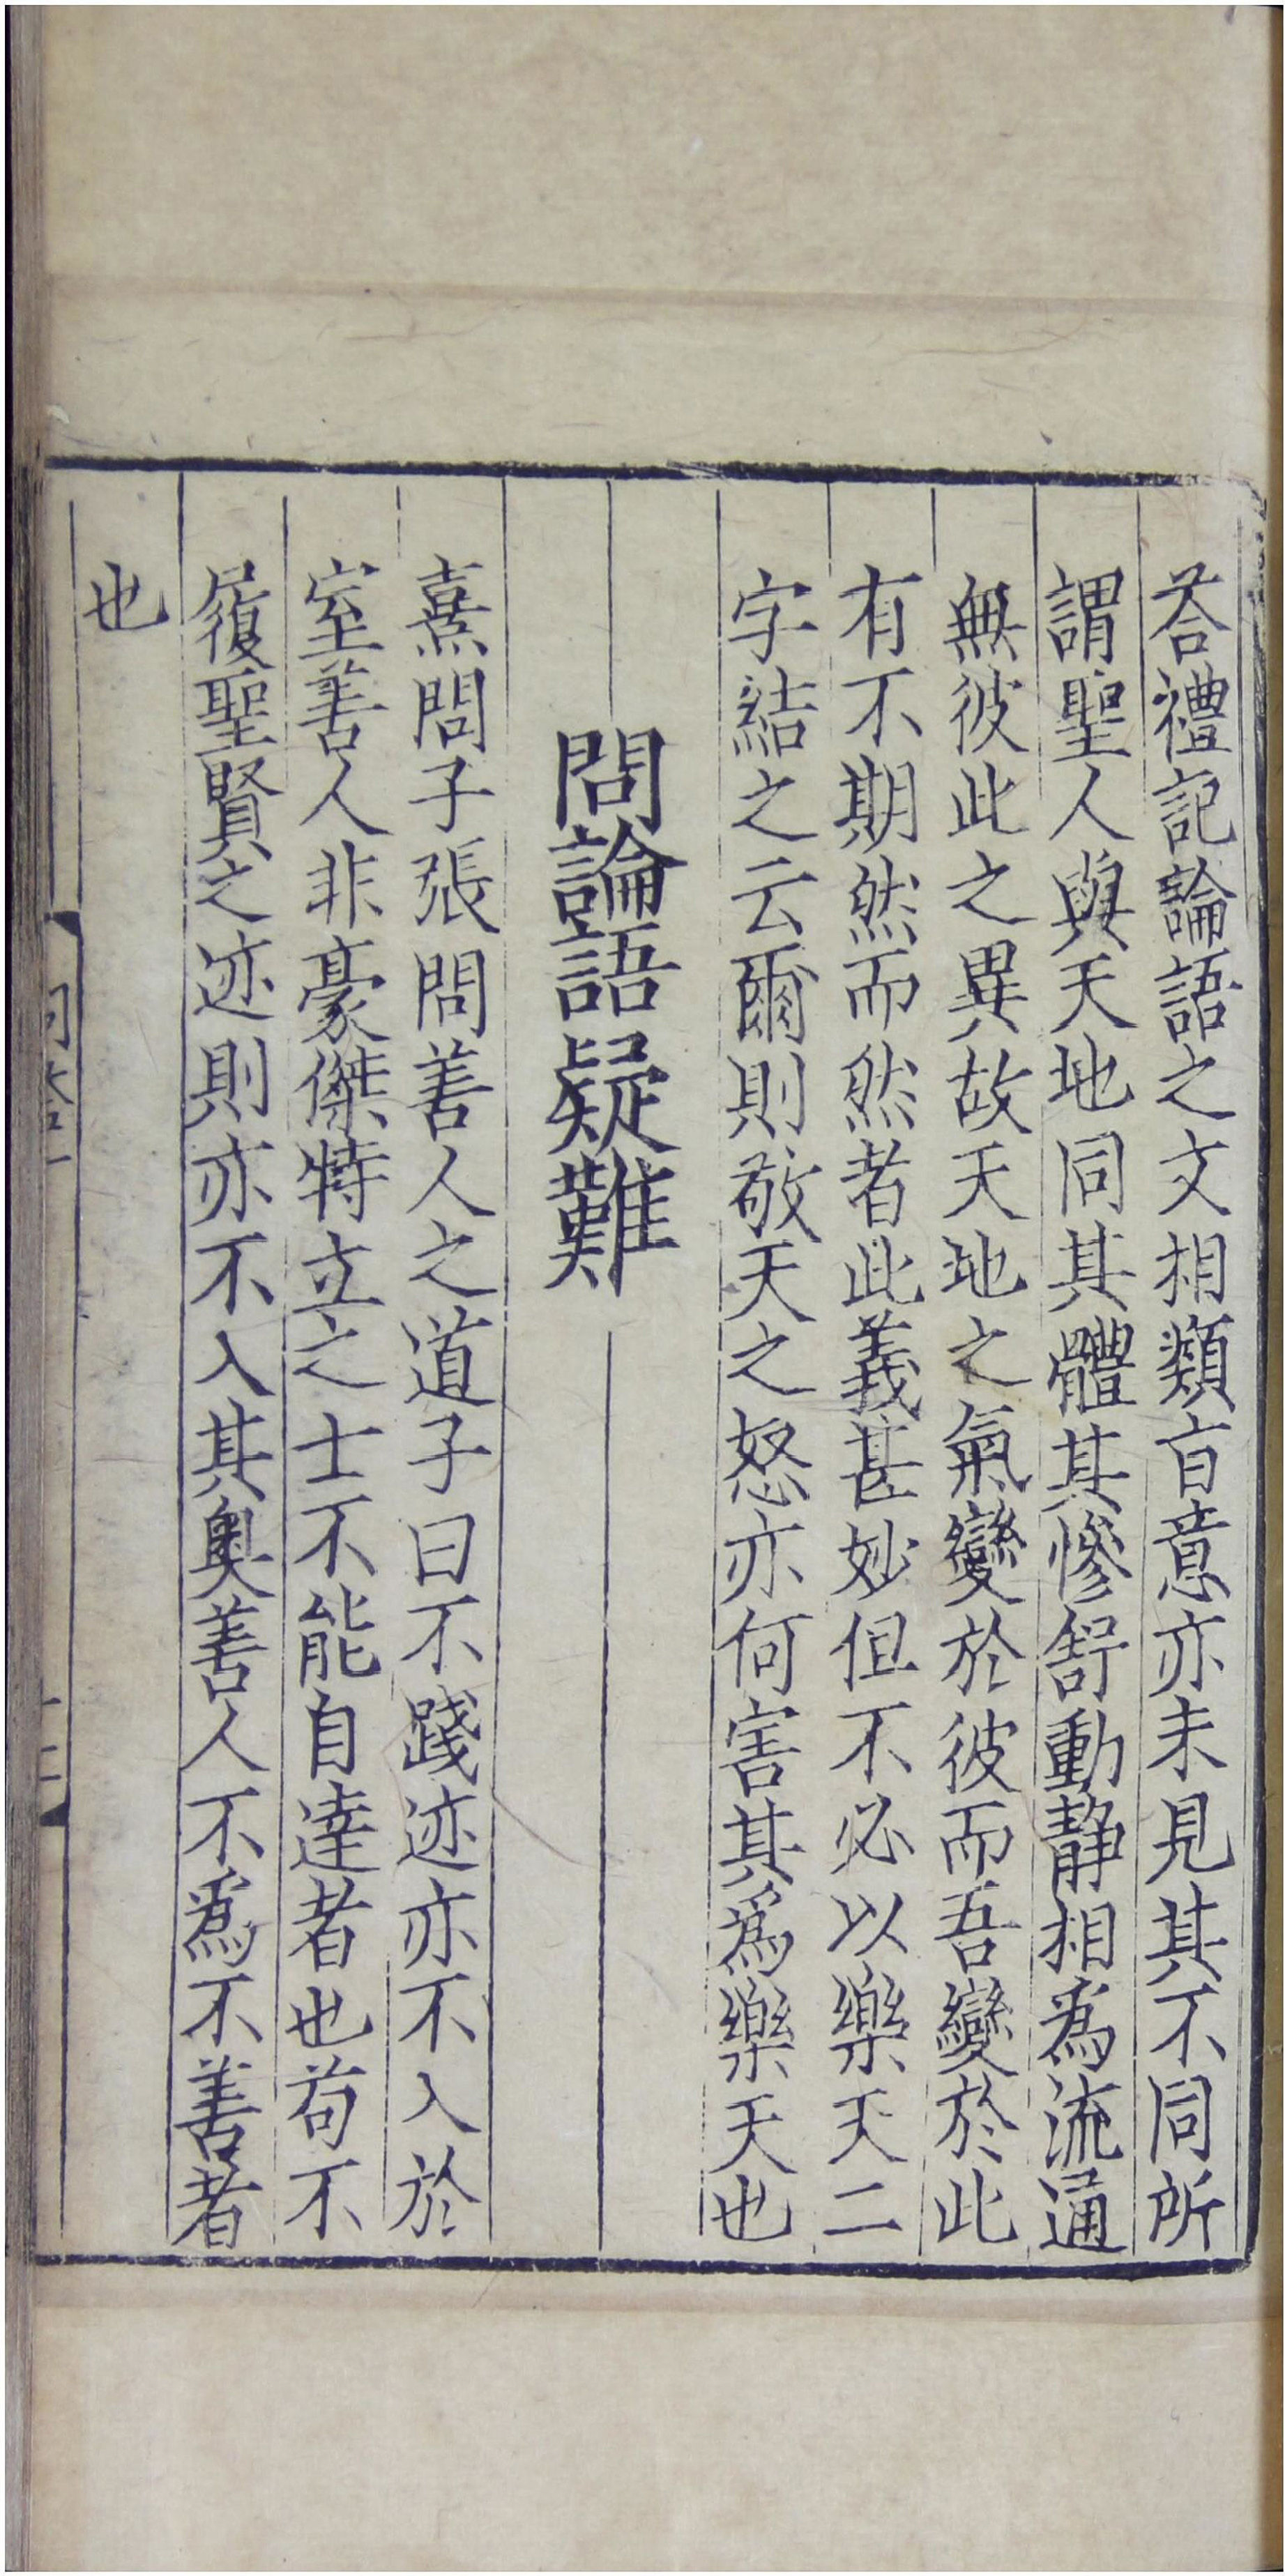 荅禮記論語之文相類盲意亦未見其不同所
謂聖人與天地同其體其慘舒動静相爲流通
無彼此之異故天地之氣變於彼而吾變於此
有不期然而然者此義甚妙但不必以樂天二
字結之云爾則敬天之怒亦何害其爲樂天也
問論語疑難
熹問子張問善人之道子曰不踐迹亦不入於
室善人非豪傑特立之士不能自達者也苟不
履聖賢之迹則亦不入其奥善人不爲不善者
也